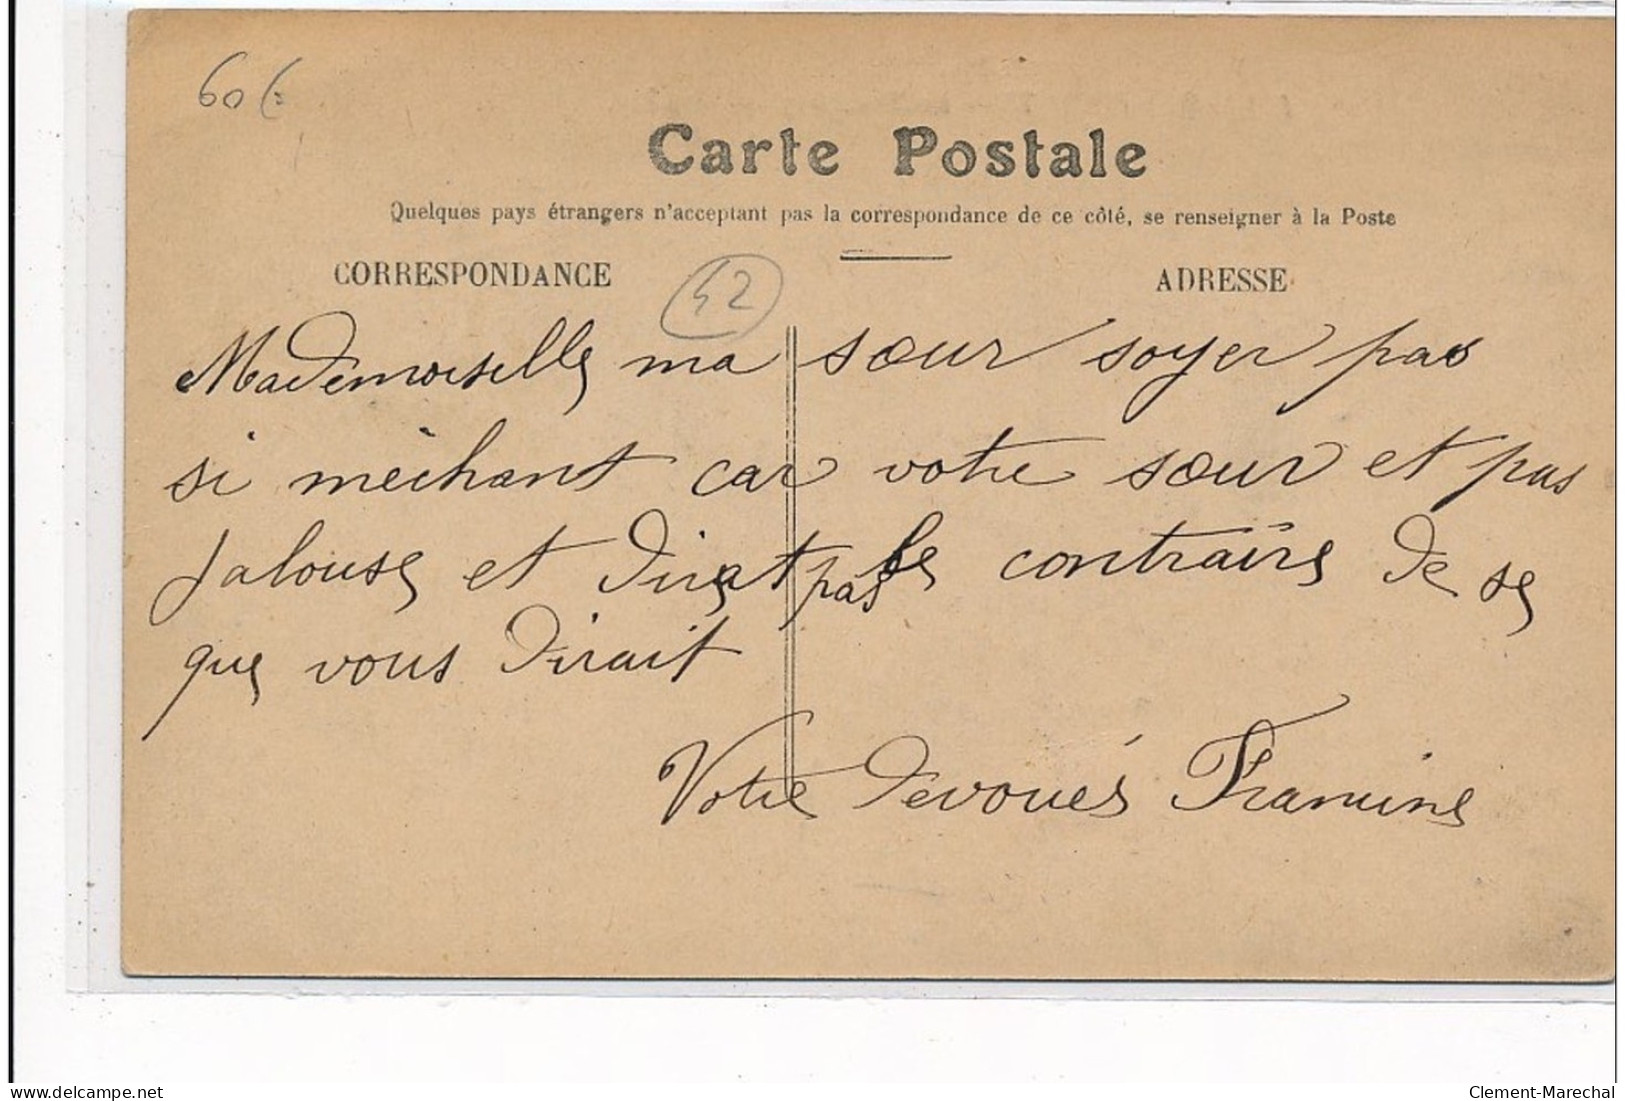 60 €
Carte Postale
Quelques pays étrangers n'acceptant pas la correspondance de ce côté, se renseigner à la Poste
CORRESPONDANCE
42
ADRESSE
Mademoiselle ma sœur soyer pas
si mèchant car votre sœur et pas
Jalouse et dirat pas le contraire de se
que vous dirait
Votre devoués Francine
delcampe.net
Clement-Marechal